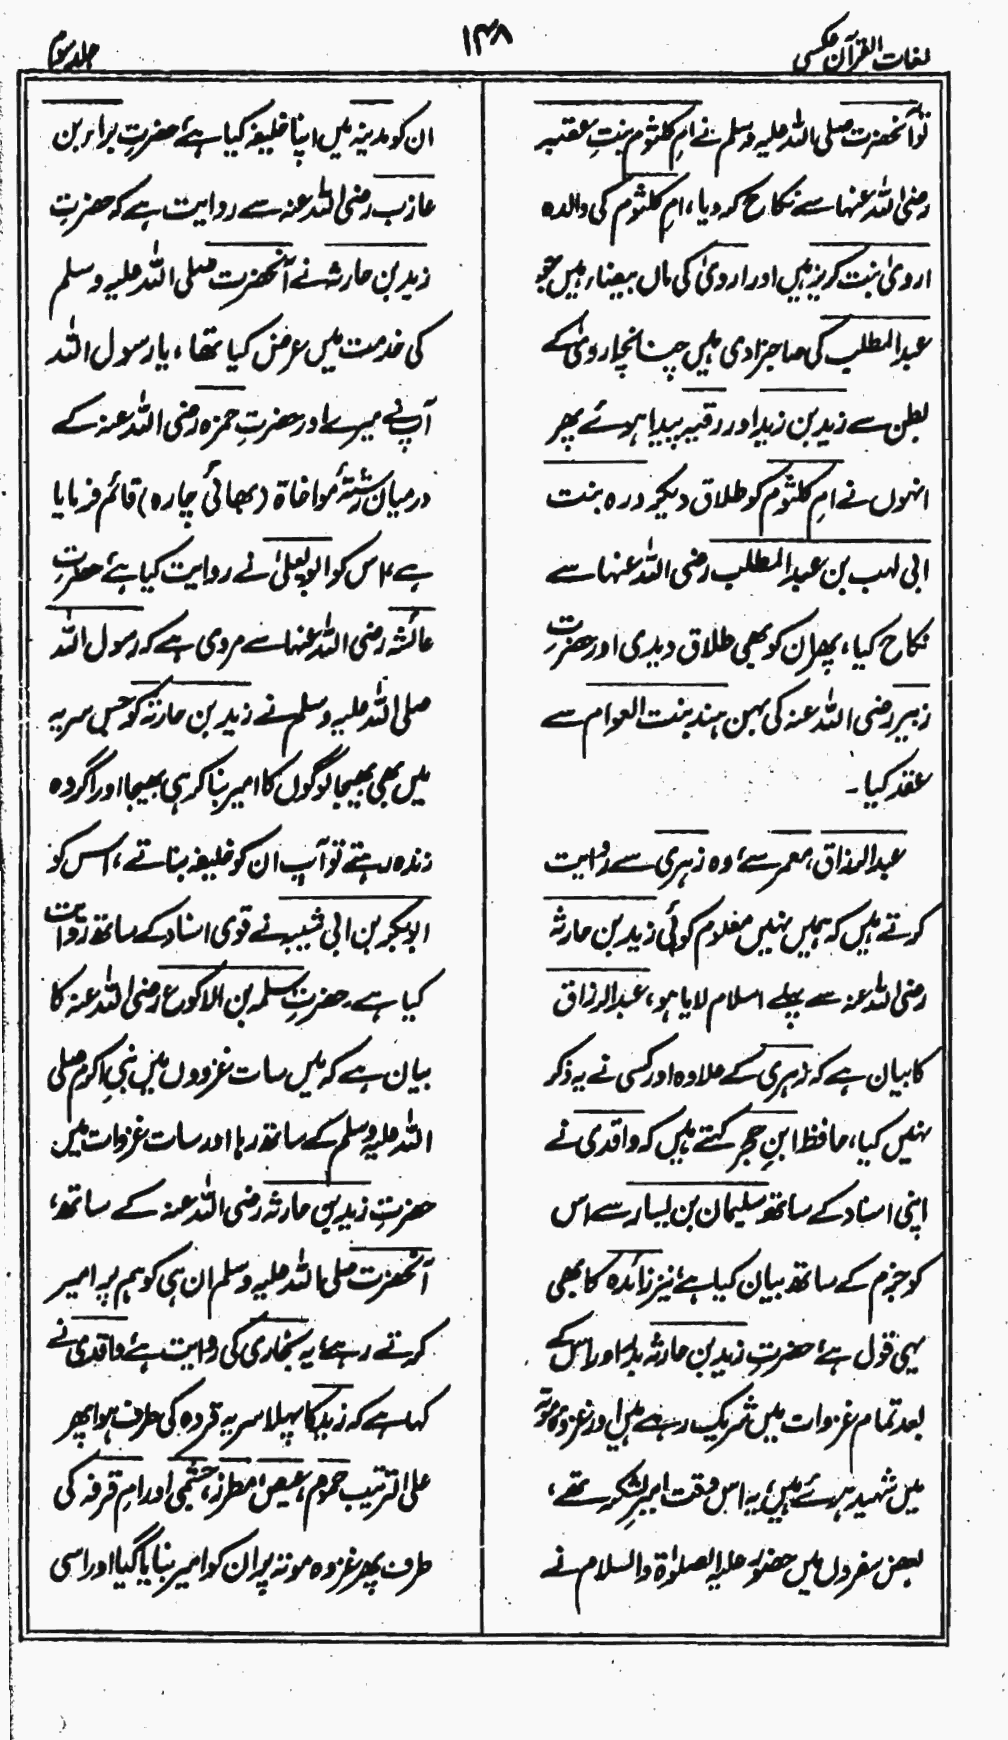 لغات القرآن عکسی
۱۴۸
جلد سوم
تو آنحضرت صلی اللہ علیہ وسلم نے ام کلثوم بنتِ عقبہ
رضی اللہ عنہا سے نکاح کر دیا، امِ کلثوم کی والدہ
اروی بنت کریز ہیں اور اروی کی ماں بیضاء ہیں جو
عبدالمطلب کی صاحبزادی ہیں چنانچہ اروی کے
بطن سے زید بن زید اور رقیہ پیدا ہوئے پھر
انہوں نے امِ کلثوم کو طلاق دیکر درہ بنت
ابی لہب بن عبدالمطلب رضی اللہ عنہا سے
نکاح کیا، پھر ان کو بھی طلاق دیدی اور حضرتِ
زبیر رضی اللہ عنہ کی بہن ہند بنت العوام سے
عقد کیا۔
عبدالرزاق، معمر سے، وہ زہری سے روایت
کرتے ہیں کہ ہمیں نہیں معلوم کوئی زید بن حارثہ
رضی اللہ عنہ سے پہلے اسلام لایا ہو، عبدالرزاق
کا بیان ہے کہ زہری کے علاوہ اور کسی نے یہ ذکر
نہیں کیا، حافظ ابنِ حجر کہتے ہیں کہ واقدی نے
اپنی اسناد کے ساتھ سلیمان بن یسار سے اس
کو جزم کے ساتھ بیان کیا ہے نیز زائدہ کا بھی
یہی قول ہے حضرتِ زید بن حارثہ بدر اور اس کے
بعد تمام غزوات میں شریک رہے ہیں اور غزوہ موتہ
میں شہید ہوئے ہیں، یہ اس وقت امیرِ لشکر تھے،
بعض سفروں میں حضور علیہ الصلوٰۃ والسلام نے
ان کو مدینہ میں اپنا خلیفہ کیا ہے حضرتِ براء بن
عازب رضی اللہ عنہ سے روایت ہے کہ حضرتِ
زید بن حارثہ نے آنحضرت صلی اللہ علیہ وسلم
کی خدمت میں عرض کیا تھا، یا رسول اللہ
آپ نے میرے اور حضرتِ حمزہ رضی اللہ عنہ کے
درمیان رشتۂ مواخاۃ (بھائی چارہ) قائم فرمایا
ہے، اس کو ابو یعلیٰ نے روایت کیا ہے حضرتِ
عائشہ رضی اللہ عنہا سے مروی ہے کہ رسول اللہ
صلی اللہ علیہ وسلم نے زید بن حارثہ کو جس سریہ
میں بھی بھیجا لوگوں کا امیر بنا کر ہی بھیجا اور اگر وہ
زندہ رہتے تو آپ ان کو خلیفہ بناتے، اس کو
ابوبکر بن ابی شیبہ نے قوی اسناد کے ساتھ روایت
کیا ہے۔ حضرتِ سلمہ بن الاکوع رضی اللہ عنہ کا
بیان ہے کہ میں سات غزووں میں نبیِ اکرم صلی
اللہ علیہ وسلم کے ساتھ رہا اور سات غزوات میں
حضرتِ زید بن حارثہ رضی اللہ عنہ کے ساتھ،
آنحضرت صلی اللہ علیہ وسلم ان ہی کو ہم پر امیر
کرتے رہے، یہ بخاری کی روایت ہے واقدی نے
کہا ہے کہ زید کا پہلا سریہ قردہ کی طرف ہوا پھر
علی الترتیب جموم، عیص، مطرز، حشمی اور امِ قرفہ کی
طرف پھر غزوہ موتہ پر ان کو امیر بنایا گیا اور اسی